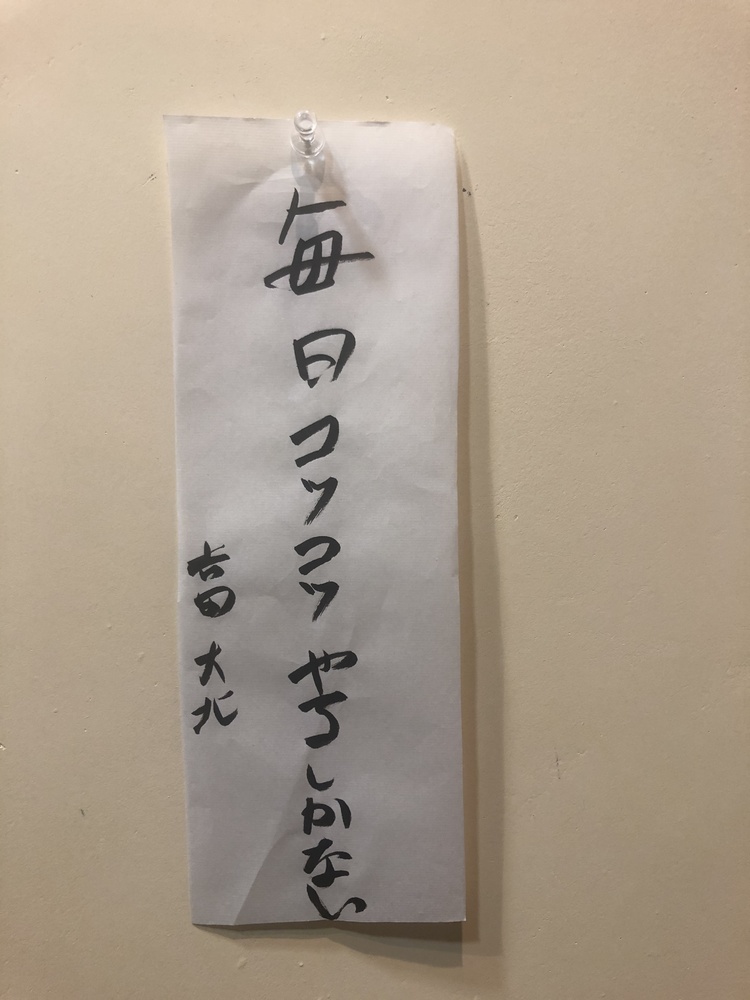 毎日コツコツやるしかない
吉田大北